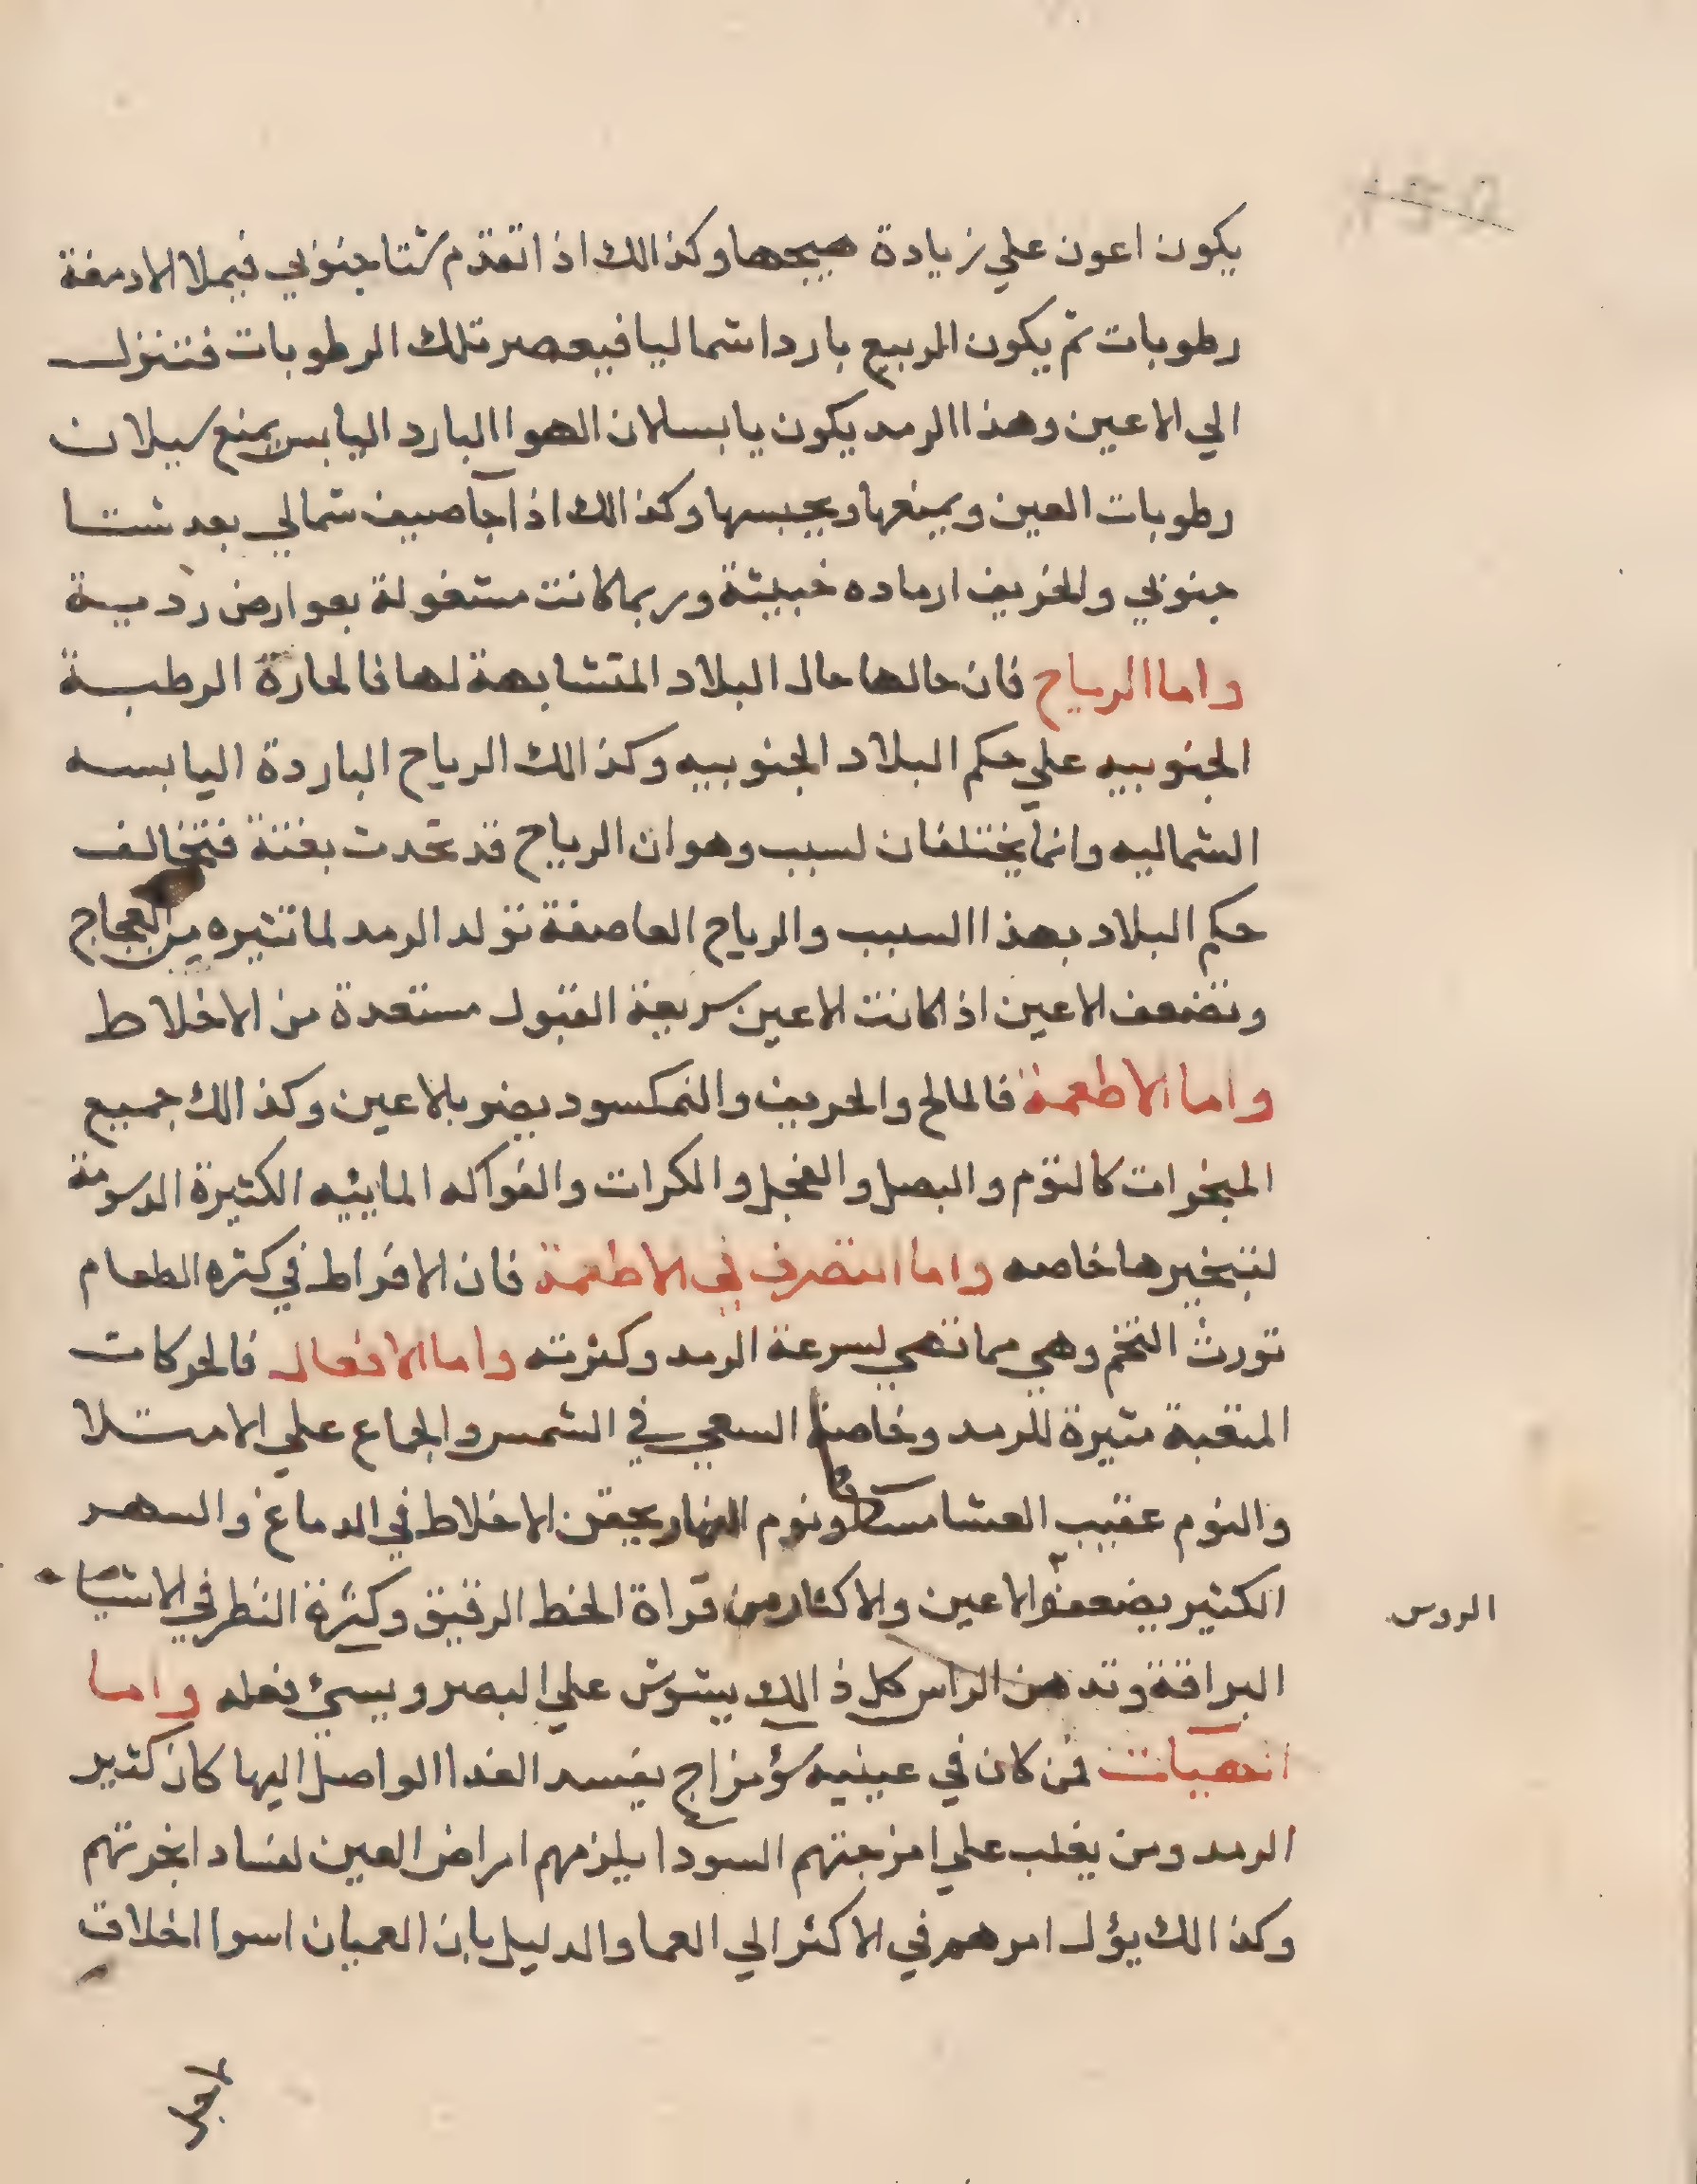 يكون اعون علي زيادة هيجها وكذالك اذا تقدم شتا جنوبي فيملا الادمغة
رطوبات ثم يكون الربيع باردا شماليا فيعصر تلك الرطوبات فتنزل
الي الاعين وهذا الرمد يكون يابسا لان الهوا البارد اليابس يمنع سيلان
رطوبات العين ويمنعها ويحبسها وكذالك اذا جا صيف شمالي بعد شتا
جنوبي والخريف ارماده خبيثة وربما كانت مشغولة بعوارض ردية
واما الرياح فان حالها حال البلاد المتشابهة لها فالحارة الرطبة
الجنوبيه علي حكم البلاد الجنوبيه وكذالك الرياح الباردة اليابسه
الشماليه وانما يختلفان لسبب وهو ان الرياح قد تحدث بغتة فتخالف
حكم البلاد بهذا السبب والرياح العاصفة تولد الرمد لما تثيره من العجاج
وتضعف الاعين اذا كانت الاعين سريعة القبول مستعدة من الاخلاط
واما الاطعمة فالمالح والحريف والنمكسود يضر بلاعين وكذالك جميع
المبخرات كالثوم والبصل والفجل والكراث والفواكه المايئيه الكثيرة الدسومة
لتبخيرها خاصه واما التصرف في الاطعمة فان الافراط في كثره الطعام
تورث التخم وهي مما تهي لسرعة الرمد وكثرته واما الافعال فالحركات
المتعبة مثيرة للرمد وخاصة السعي في الشمس والجماع علي الامتلا
والنوم عقيب العشا ونوم النهار يحقن الاخلاط في الدماغ والسهر
الكثير يضعف الاعين والاكثار من قراة الخط الرقيق وكثرة النظر في الاشيا
الروس
البراقة وتدهن الراس كل ذالك يشوش علي البصر ويسئ فعله واما
الهيات فمن كان في عينيه سؤ مزاج يفسد الغدا الواصل اليها كان كثير
الرمد ومن يغلب علي امزجتهم السودا يلزمهم امراض العين لفساد ابخرتهم
وكذالك يؤل امرهم في الاكثر الي العما والدليل بان العميان اسوا اخلاق